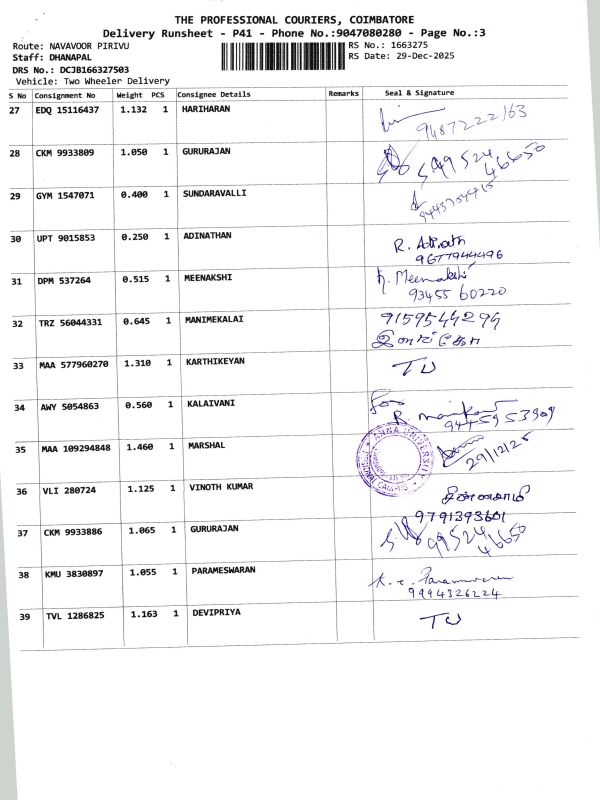 THE PROFESSIONAL COURIERS, COIMBATORE
Delivery Runsheet - P41 - Phone No.:9047080280 - Page No.:3
Route: NAVAVOOR PIRIVU RS No.: 1663275
Staff: DHANAPAL RS Date: 29-Dec-2025
DRS No.: DCJB166327503
Vehicle: Two Wheeler Delivery
S No Consignment No Weight PCS Consignee Details Remarks Seal & Signature
27 EDQ 15116437 1.132 1 HARIHARAN
9487222163
28 CKM 9933809 1.050 1 GURURAJAN
99524
46650
29 GYM 1547071 0.400 1 SUNDARAVALLI
30 UPT 9015853 0.250 1 ADINATHAN
R. Adinath
9677944496
31 DPM 537264 0.515 1 MEENAKSHI
Meenakshi
93455 60220
32 TRZ 56044331 0.645 1 MANIMEKALAI
9159544294
இளங்கோ
33 MAA 577960270 1.310 1 KARTHIKEYAN
TU
34 AWY 5054863 0.560 1 KALAIVANI
For
R.
9445953909
35 MAA 109294848 1.460 1 MARSHAL
ANNA UNIVERSITY
29/12/25
36 VLI 280724 1.125 1 VINOTH KUMAR
சின்னசாமி
9791393601
37 CKM 9933886 1.065 1 GURURAJAN
99524
46650
38 KMU 3830897 1.055 1 PARAMESWARAN
9994326224
39 TVL 1286825 1.163 1 DEVIPRIYA
TU